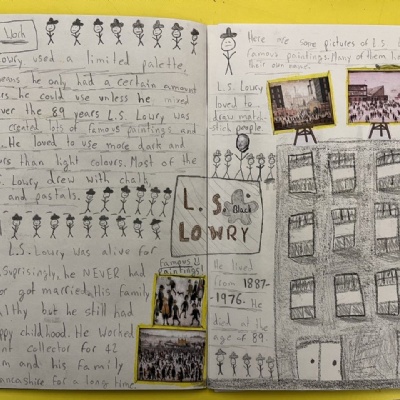 Work
Lowry used a limited palette.
means he only had a certain amount
he could use unless he mixed
over the 89 years L.S. Lowry was
created lots of famous paintings and
He loved to use more dark and
than light colours. Most of the
Lowry drew with chalk,
and pastals.
L.S. Lowry was alive for
Suprisingly, he NEVER had
or got married. His family
but he still had
happy childhood. He worked
collector for 42
and his family
Lancashire for a long time
Famous
Paintings!
Here are some pictures of L.S
famous paintings. Many of them
their own name.
L.S. Lowry
loved to
draw match-
stick people.
L.S.
Black
LOWRY
He lived
from 1887-
-1976. He
died at the
age of 89